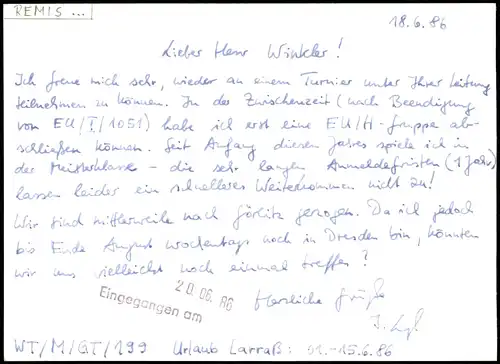 REMIS ...
18.6.86
Lieber Herr Winkler!
Ich freue mich sehr, wieder an einem Turnier unter Ihrer Leitung
teilnehmen zu können. In der Zwischenzeit (nach Beendigung
von EU/I/1051) habe ich erst eine EU/H-Gruppe ab-
schließen können. Seit Anfang diesen Jahres spiele ich in
der Meisterklasse - die sehr langen Anmeldefristen (1 Jahr)
lassen leider ein schnelleres Weiterkommen nicht zu!
Wir sind mittlerweile nach Görlitz gezogen. Da ich jedoch
bis Ende August wochentags noch in Dresden bin, könnten
wir uns vielleicht noch einmal treffen?
20.06.86
Eingegangen am
Herzliche Grüße
WT/M/GT/199 Urlaub Larraß: 01.-15.6.86